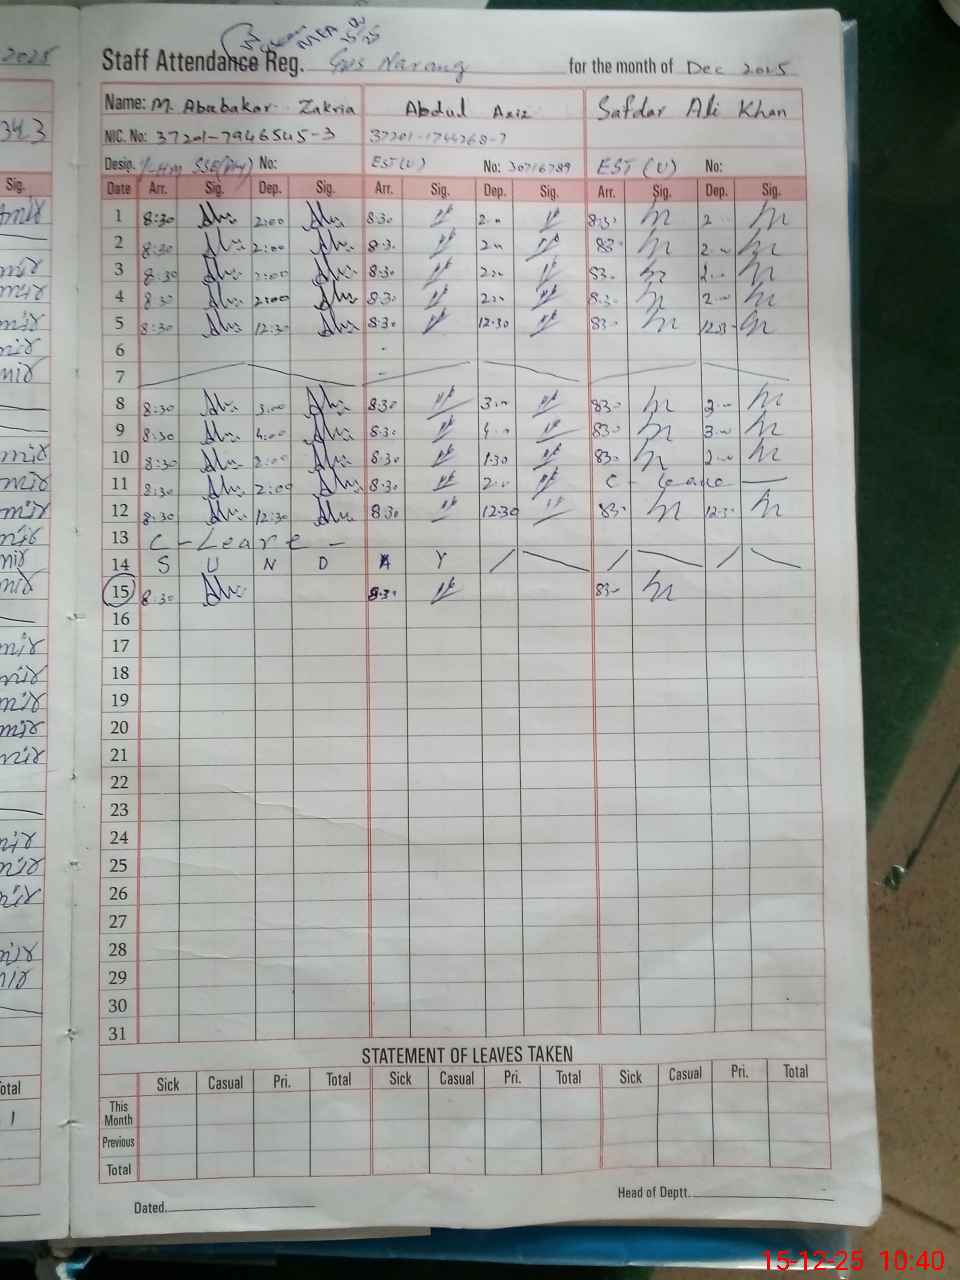 Staff Attendance Reg. GHS Narang for the month of Dec 2025
Name: M. Abubakar Zakria Abdul Aziz Safdar Ali Khan
NIC. No: 37201-7946545-3 37201-1744268-7
Desig. I-HM SSE(Phy) No: EST(U) No: 30716789 EST (U) No:
Date Arr. Sig. Dep. Sig. Arr. Sig. Dep. Sig. Arr. Sig. Dep. Sig.
1 8:30 2:00 8:30 2:00 8:30 2
2 8:30 2:00 8:30 2:00 8:30 2:00
3 8:30 2:00 8:30 2:00 8:30 2:00
4 8:30 2:00 8:30 2:00 8:30 2:00
5 8:30 12:30 8:30 12:30 8:30 12:30
6
7
8 8:30 3:00 8:30 3:00 8:30
9 8:30 4:00 8:30 4:00 8:30 3:00
10 8:30 8:30 1:30 8:30 2:00
11 8:30 2:00 8:30 2:00 C - Leave
12 8:30 12:30 8:30 12:30 8:30 12:30
13 C - Leave -
14 S U N D A Y
15 8:30 8:30 8:30
16
17
18
19
20
21
22
23
24
25
26
27
28
29
30
31
STATEMENT OF LEAVES TAKEN
Sick Casual Pri. Total Sick Casual Pri. Total Sick Casual Pri. Total
This Month
Previous
Total
Dated. Head of Deptt.
15-12-25 10:40